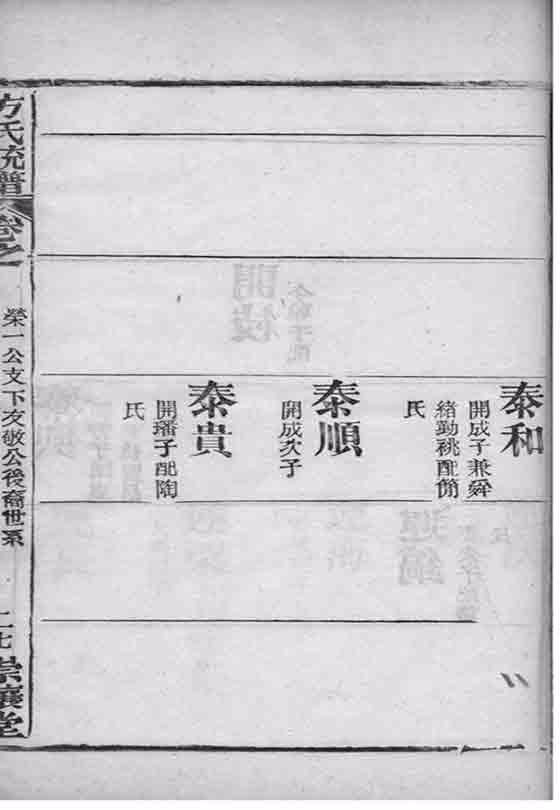 泰和
開成子兼舜
緒勤祧配簡
氏
泰順
開成次子
泰貴
開璠子配陶
氏
方氏統譜
卷之
榮一公支下友敬公後裔世系
崇讓堂